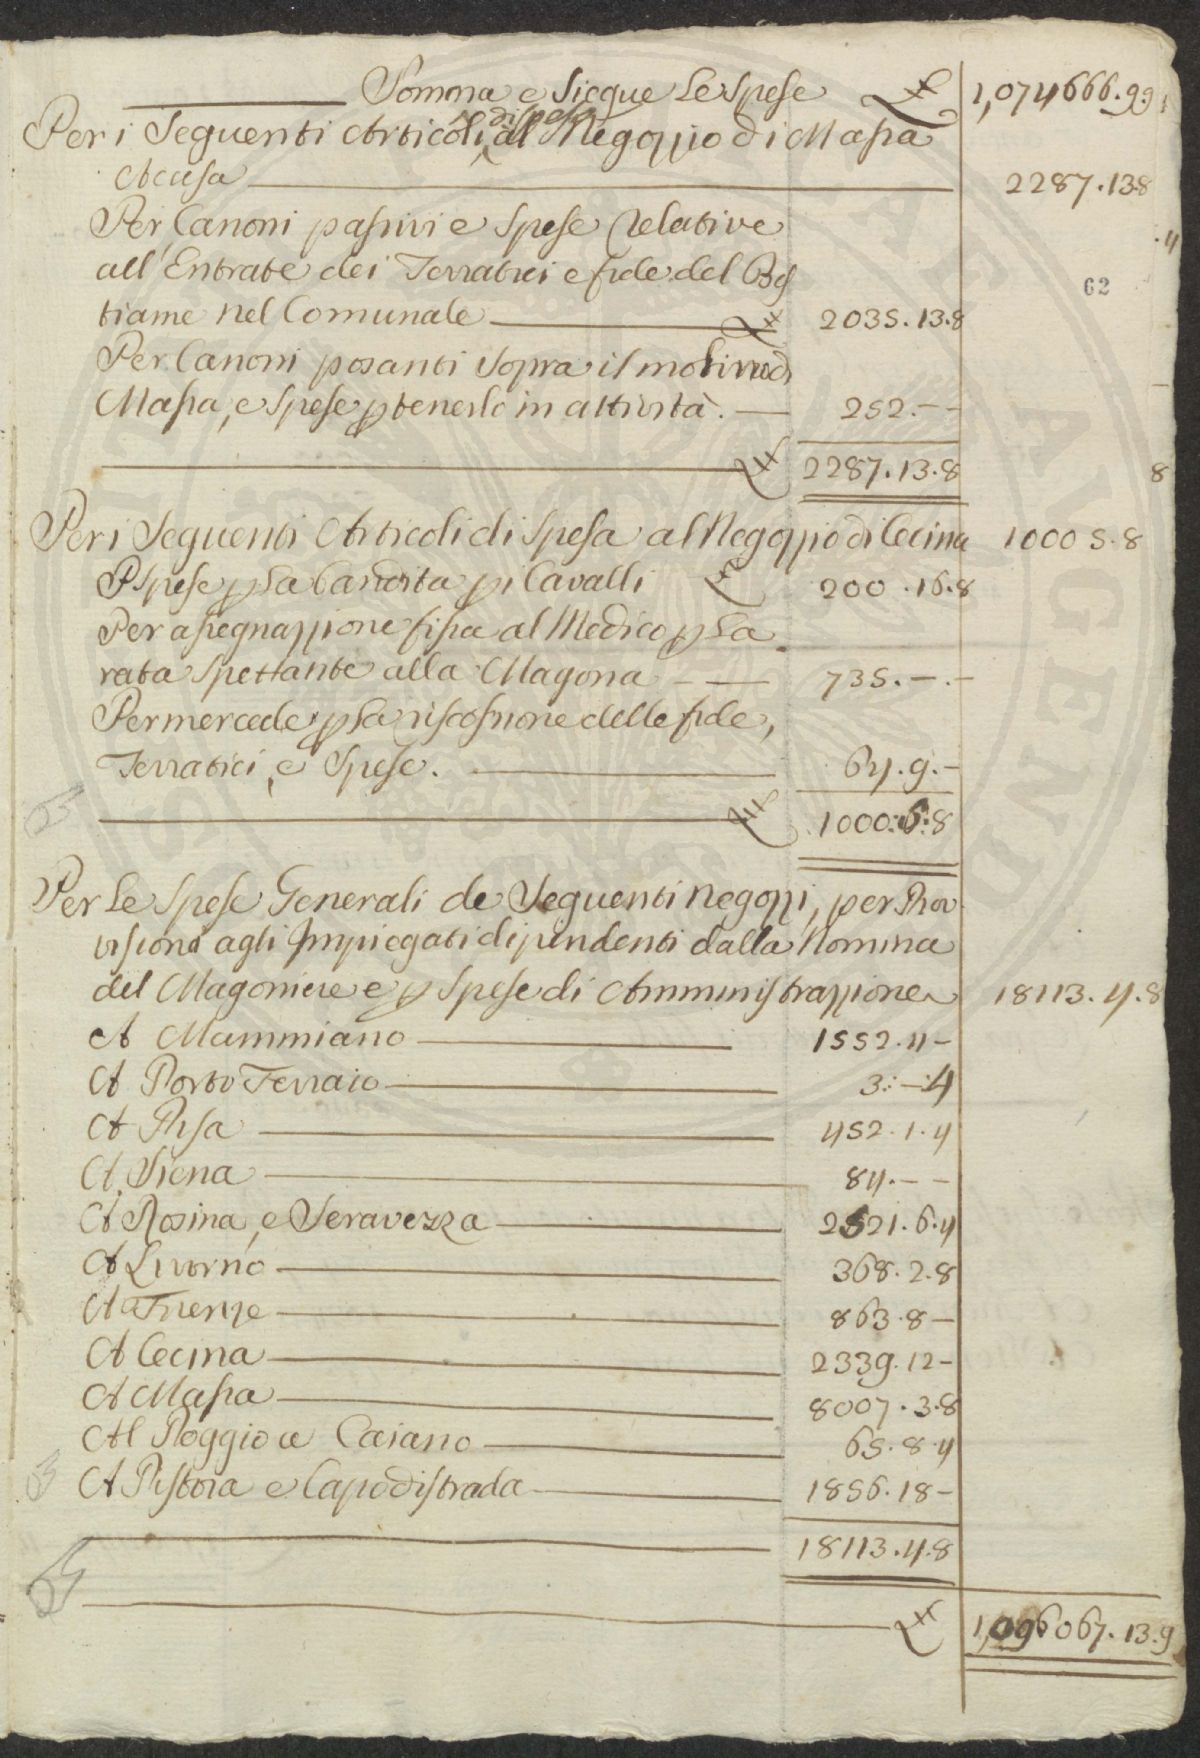 Somma e Siegue Le Spese £ 1,074666.9.9
di Spesa
Per i Seguenti Articoli, al Negozzio di Massa
Accusa 2287.13.8
Per Canoni passivi e Spese Relative
all'Entrate dei Terratici e fide del Bes
tiame nel Comunale £ 2035.13.8
62
Per Canoni posanti Sopra il molino di
Massa, e Spese p tenerlo in attività. 252.--
£ 2287.13.8
Per i Seguenti Articoli di Spesa al Negozzio di Cecina 1000 5.8
P Spese p La Bandita p i Cavalli £ 200.16.8
Per assegnazzione fissa al Medico p La
rata Spettante alla Magona 735.-.-
Per mercede p La riscossione delle fide,
Terratici, e Spese. 64.9.-
£ 1000.5.8
Per Le Spese Generali de Seguenti Negozzi, per Prov
visioni agli Impiegati dipendenti dalla Nomina
del Magoniere e p Spese di Amministrazzione 18113.4.8
A Mammiano 1552.4-
A Porto Ferraio 3.-.4
A Pisa 452.1.4
A Siena 84.--
A Rosina, e Seravezza 2521.6.4
A Livorno 368.2.8
A Firenze 863.8-
A Cecina 2339.12-
A Massa 8007.3.8
Al Poggio a Caiano 65.8.4
A Pistoia e Capodistrada 1856.18-
18113.4.8
£ 1,096067.13.9